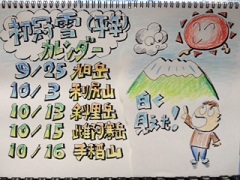 初冠雪(平年)
カレンダー
9/25 旭岳
10/3 利尻山
10/13 斜里岳
10/15 雌阿寒岳
10/16 手稲山
白く
見えた!